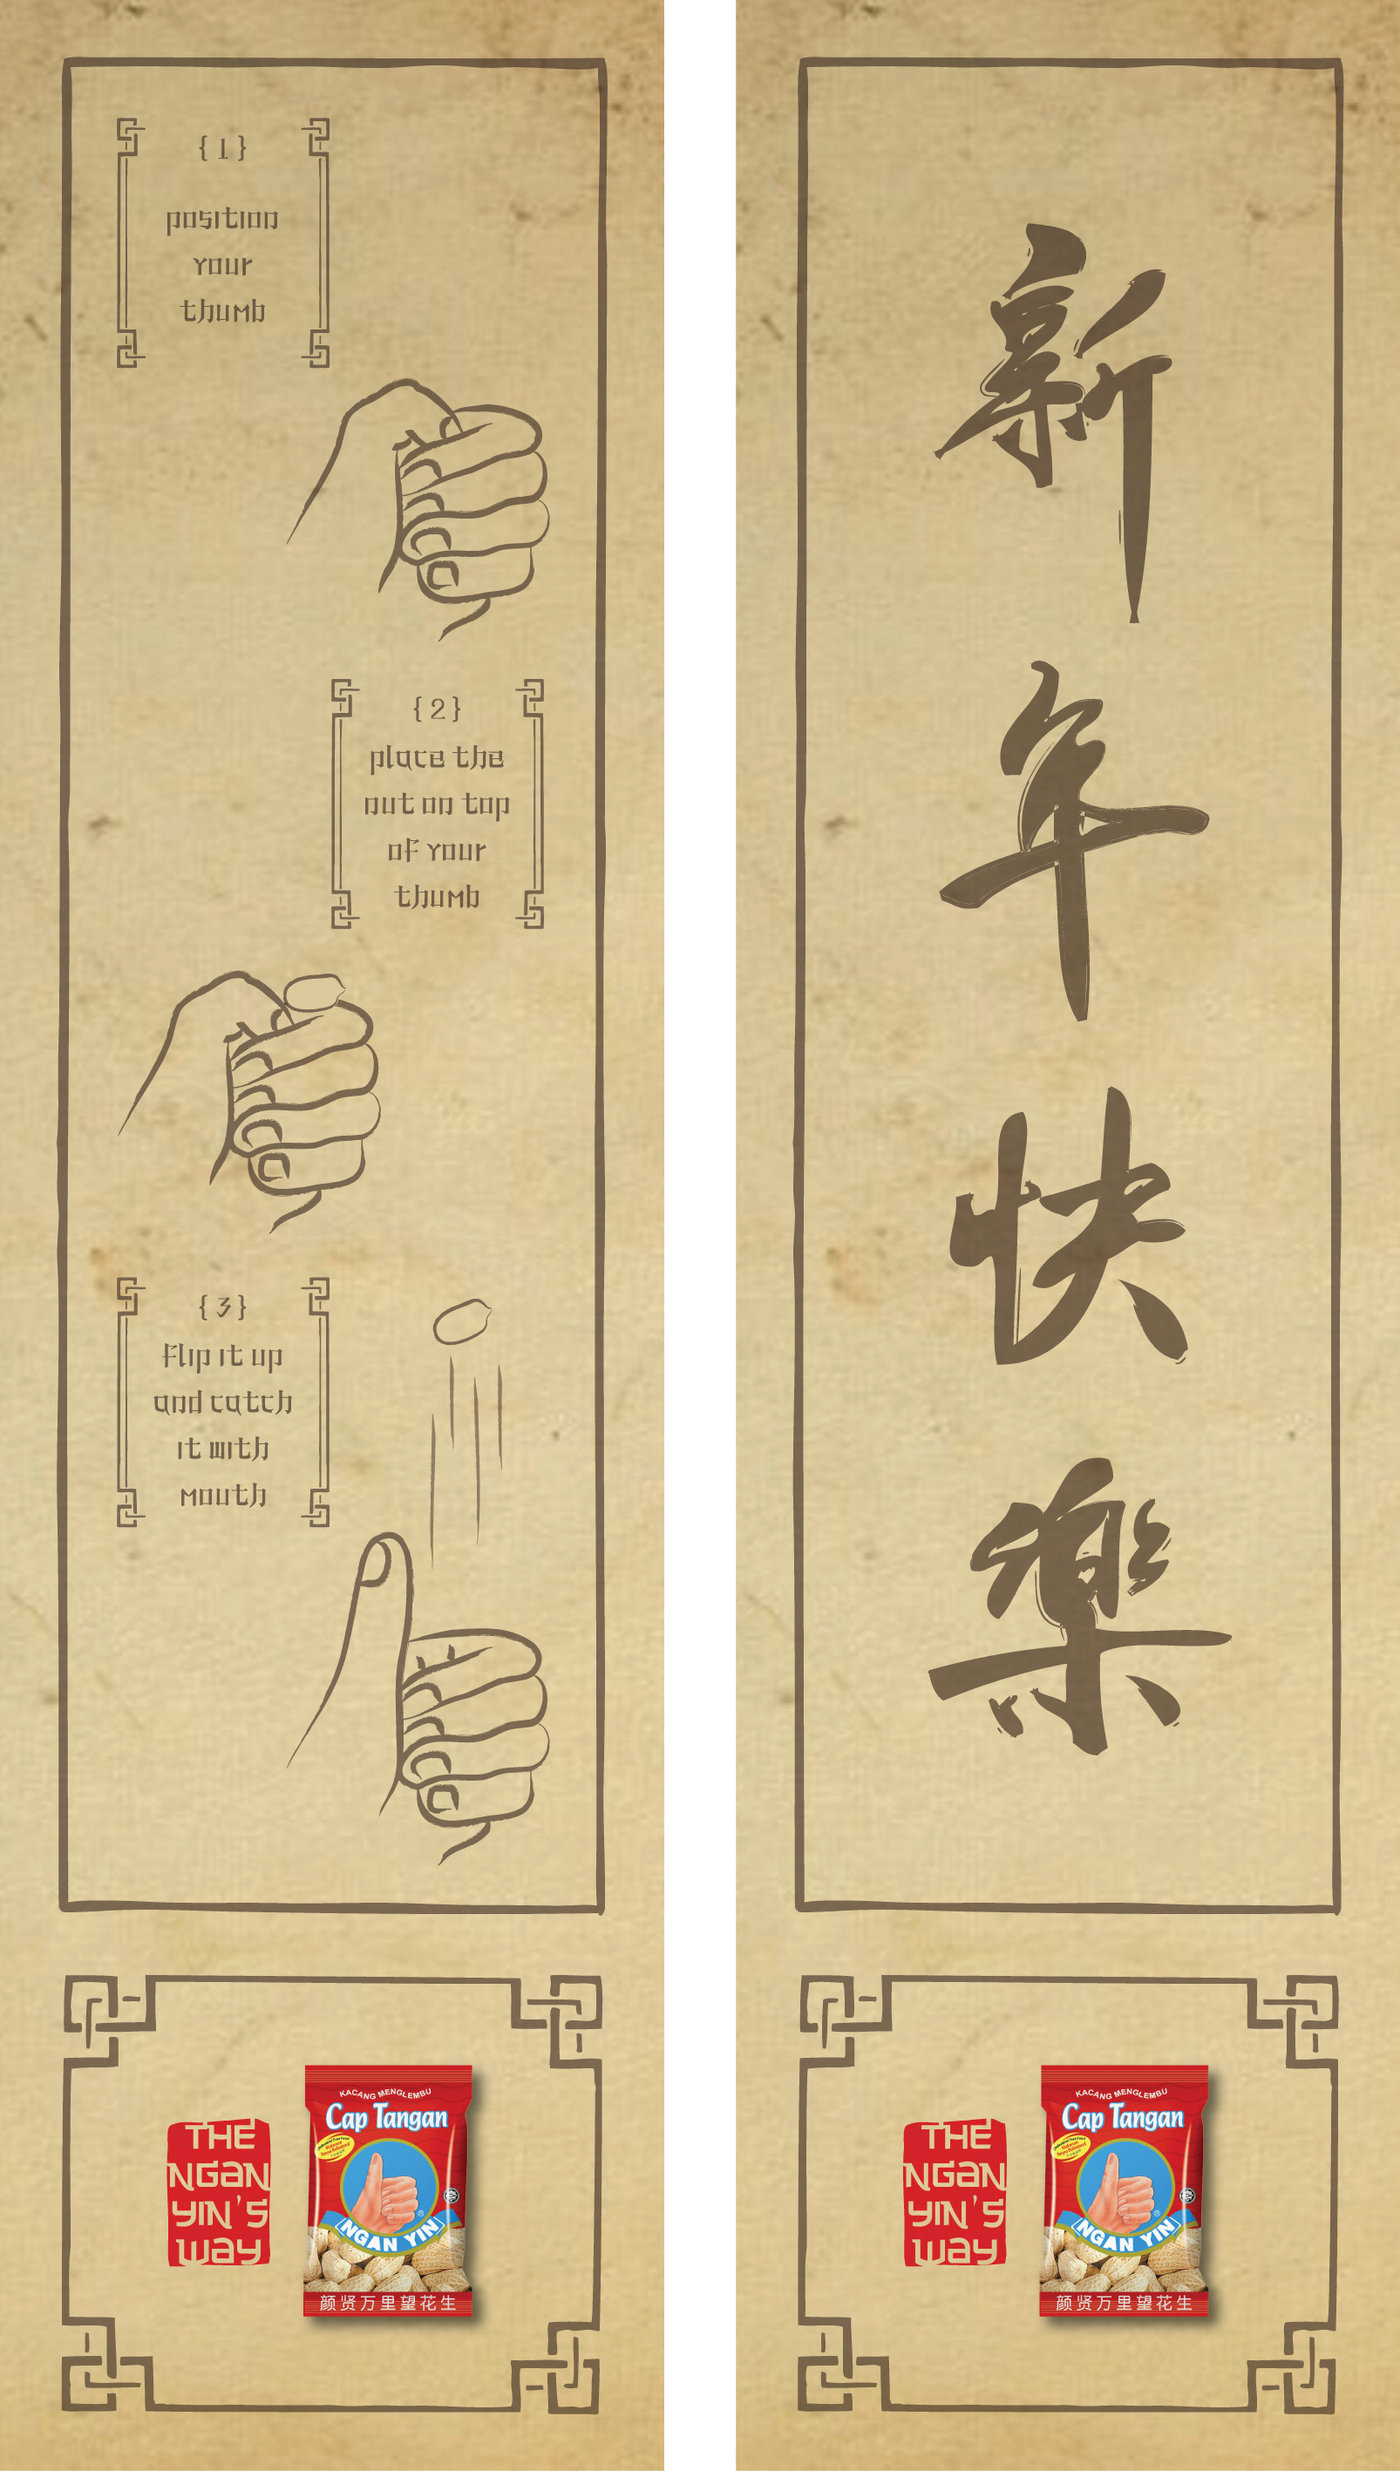 {1}
position
your
thumb
{2}
place the
nut on top
of your
thumb
{3}
flip it up
and catch
it with
mouth
THE
NGAN
YIN'S
WAY
KACANG MENGLEMBU
Cap Tangan
NGAN YIN
颜贤万里望花生
新
年
快
樂
THE
NGAN
YIN'S
WAY
KACANG MENGLEMBU
Cap Tangan
NGAN YIN
颜贤万里望花生